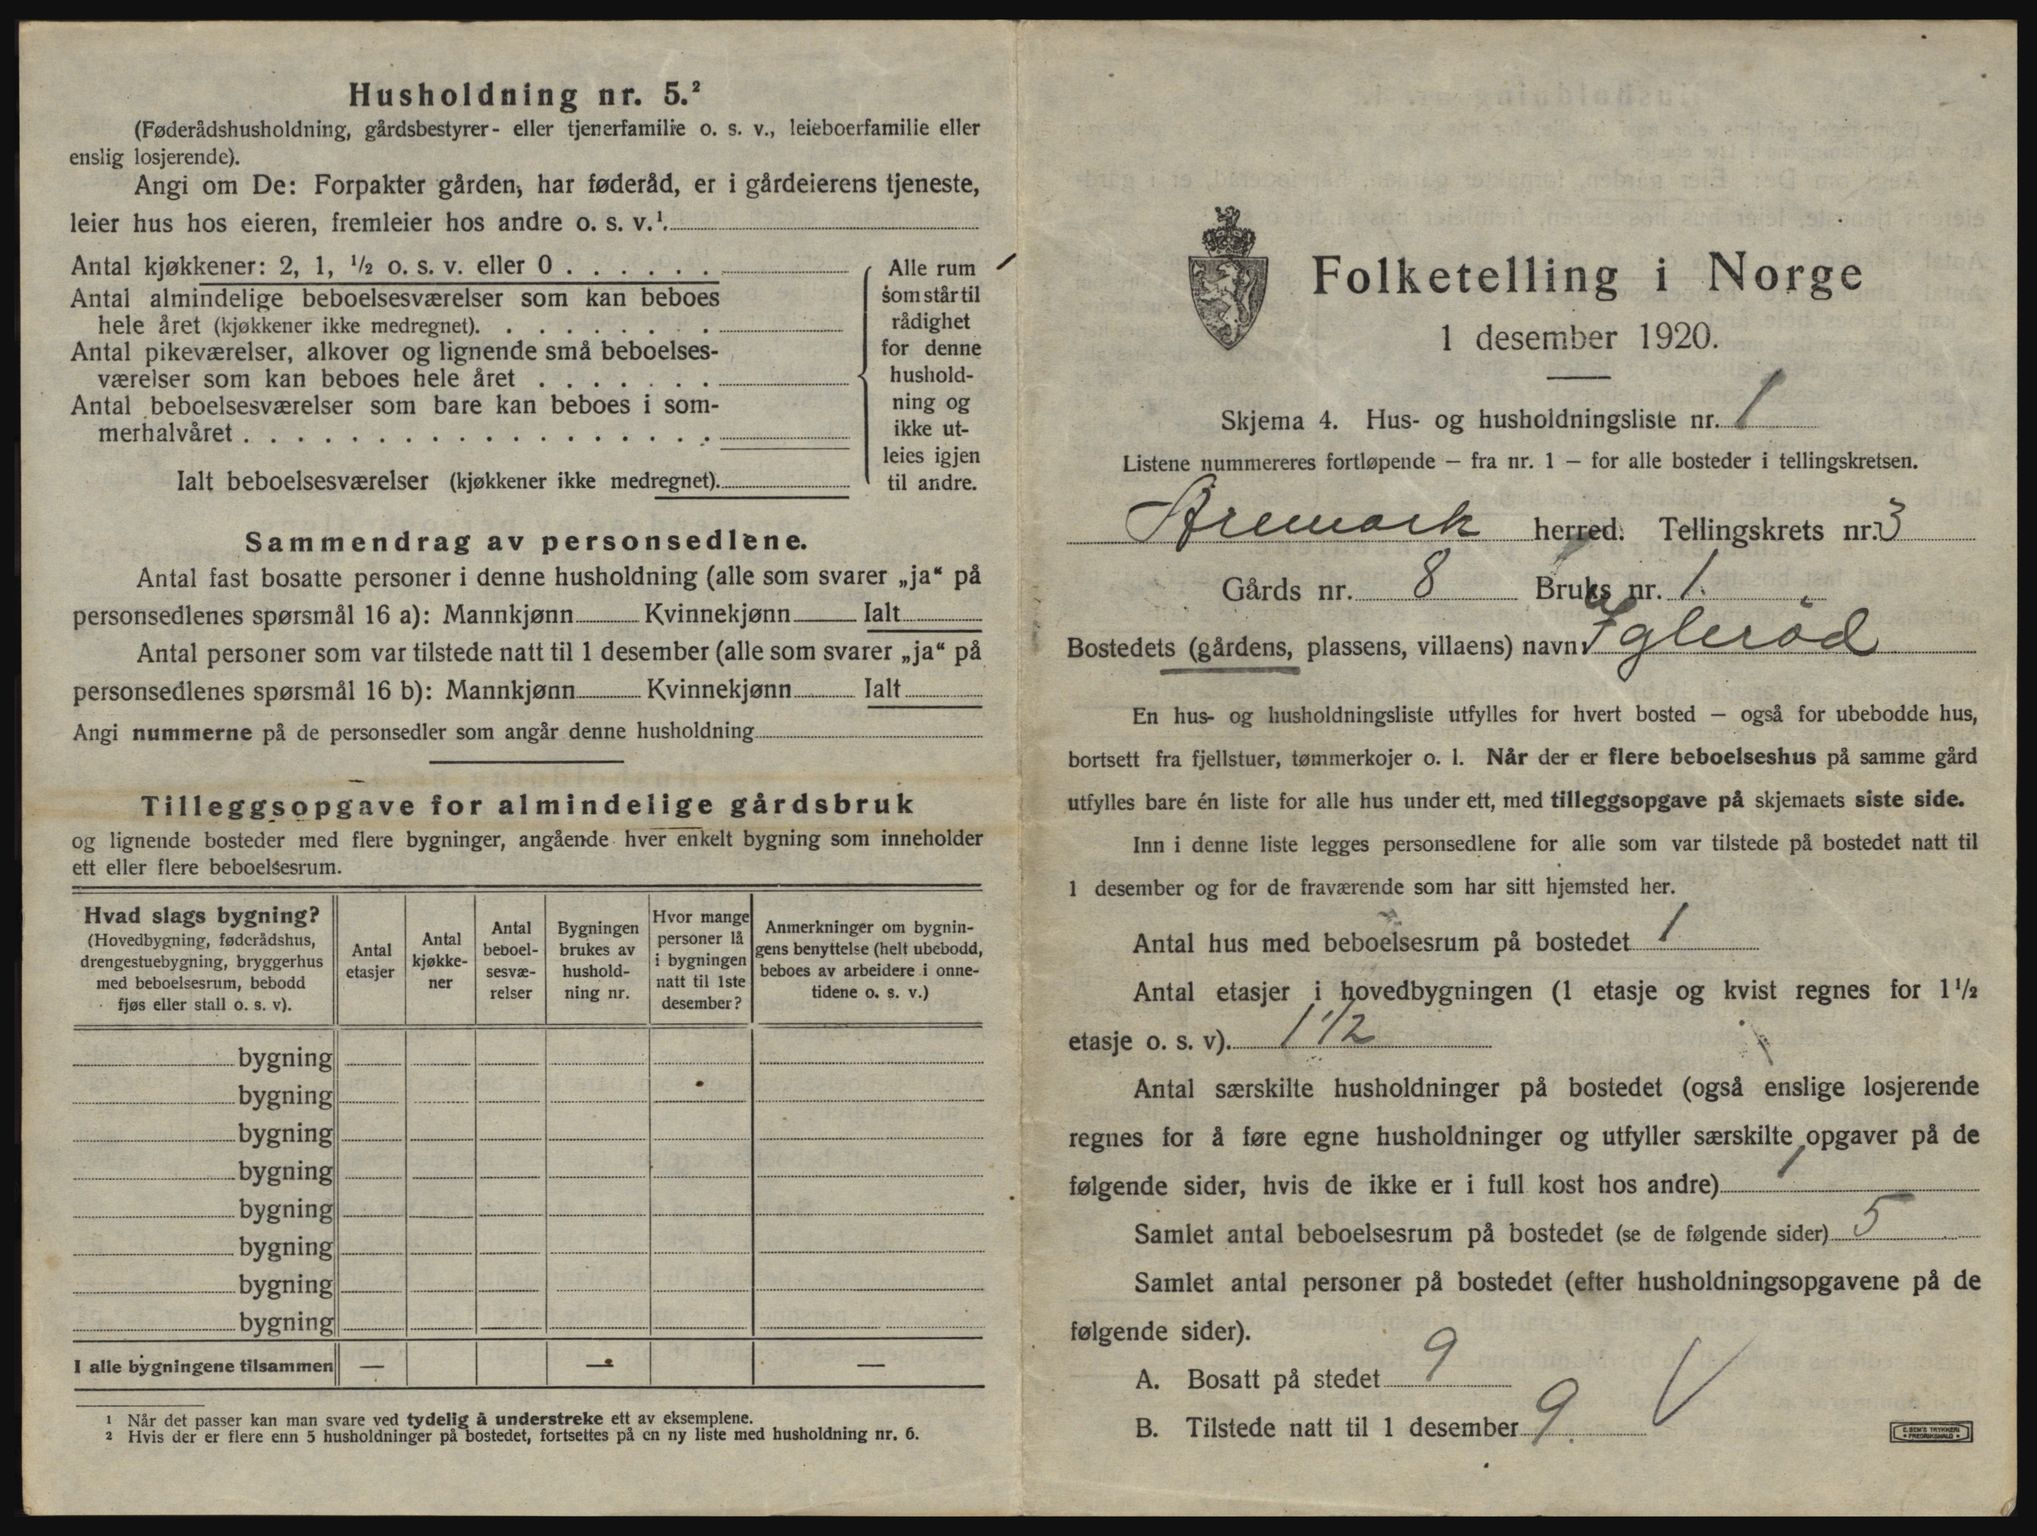 Husholdning nr. 5.²
(Føderådshusholdning, gårdsbestyrer- eller tjenerfamilie o. s. v., leieboerfamilie eller
enslig losjerende).
Angi om De: Forpakter gården, har føderåd, er i gårdeierens tjeneste,
leier hus hos eieren, fremleier hos andre o. s. v.¹.
Antal kjøkkener: 2, 1, ½ o. s. v. eller 0 . . . . . .
Antal almindelige beboelsesværelser som kan beboes
hele året (kjøkkener ikke medregnet). . . . . . . . .
Antal pikeværelser, alkover og lignende små beboelses-
værelser som kan beboes hele året . . . . . . .
Antal beboelsesværelser som bare kan beboes i som-
merhalvåret . . . . . . . . . . . . . . . . . .
Ialt beboelsesværelser (kjøkkener ikke medregnet).
Alle rum
som står til
rådighet
for denne
hushold-
ning og
ikke ut-
leies igjen
til andre.
Sammendrag av personsedlene.
Antal fast bosatte personer i denne husholdning (alle som svarer „ja“ på
personsedlenes spørsmål 16 a): Mannkjønn Kvinnekjønn Ialt
Antal personer som var tilstede natt til 1 desember (alle som svarer „ja“ på
personsedlenes spørsmål 16 b): Mannkjønn Kvinnekjønn Ialt
Angi nummerne på de personsedler som angår denne husholdning
Tilleggsopgave for almindelige gårdsbruk
og lignende bosteder med flere bygninger, angående hver enkelt bygning som inneholder
ett eller flere beboelsesrum.
Hvad slags bygning?
(Hovedbygning, føderådshus,
drengestuebygning, bryggerhus
med beboelsesrum, bebodd
fjøs eller stall o. s. v).
Antal
etasjer
Antal
kjøkke-
ner
Antal
beboel-
sesvæ-
relser
Bygningen
brukes av
hushold-
ning nr.
Hvor mange
personer lå
i bygningen
natt til 1ste
desember?
Anmerkninger om bygnin-
gens benyttelse (helt ubebodd,
beboes av arbeidere i onne-
tidene o. s. v.)
bygning
bygning
bygning
bygning
bygning
bygning
bygning
bygning
I alle bygningene tilsammen — — —
¹ Når det passer kan man svare ved tydelig å understreke ett av eksemplene.
² Hvis der er flere enn 5 husholdninger på bostedet, fortsettes på en ny liste med husholdning nr. 6.
Folketelling i Norge
1 desember 1920.
Skjema 4. Hus- og husholdningsliste nr. 1
Listene nummereres fortløpende – fra nr. 1 – for alle bosteder i tellingskretsen.
Aremark herred. Tellingskrets nr. 3
Gårds nr. 8 Bruks nr. 1.
Bostedets (gårdens, plassens, villaens) navn Iglerød
En hus- og husholdningsliste utfylles for hvert bosted – også for ubebodde hus,
bortsett fra fjellstuer, tømmerkojer o. l. Når der er flere beboelseshus på samme gård
utfylles bare én liste for alle hus under ett, med tilleggsopgave på skjemaets siste side.
Inn i denne liste legges personsedlene for alle som var tilstede på bostedet natt til
1 desember og for de fraværende som har sitt hjemsted her.
Antal hus med beboelsesrum på bostedet 1
Antal etasjer i hovedbygningen (1 etasje og kvist regnes for 1½
etasje o. s. v). 1 1/2
Antal særskilte husholdninger på bostedet (også enslige losjerende
regnes for å føre egne husholdninger og utfyller særskilte opgaver på de
følgende sider, hvis de ikke er i full kost hos andre) 1
Samlet antal beboelsesrum på bostedet (se de følgende sider) 5
Samlet antal personer på bostedet (efter husholdningsopgavene på de
følgende sider).
A. Bosatt på stedet 9
B. Tilstede natt til 1 desember 9.
E. SEM'S TRYKKERI
• FREDRIKSHALD •